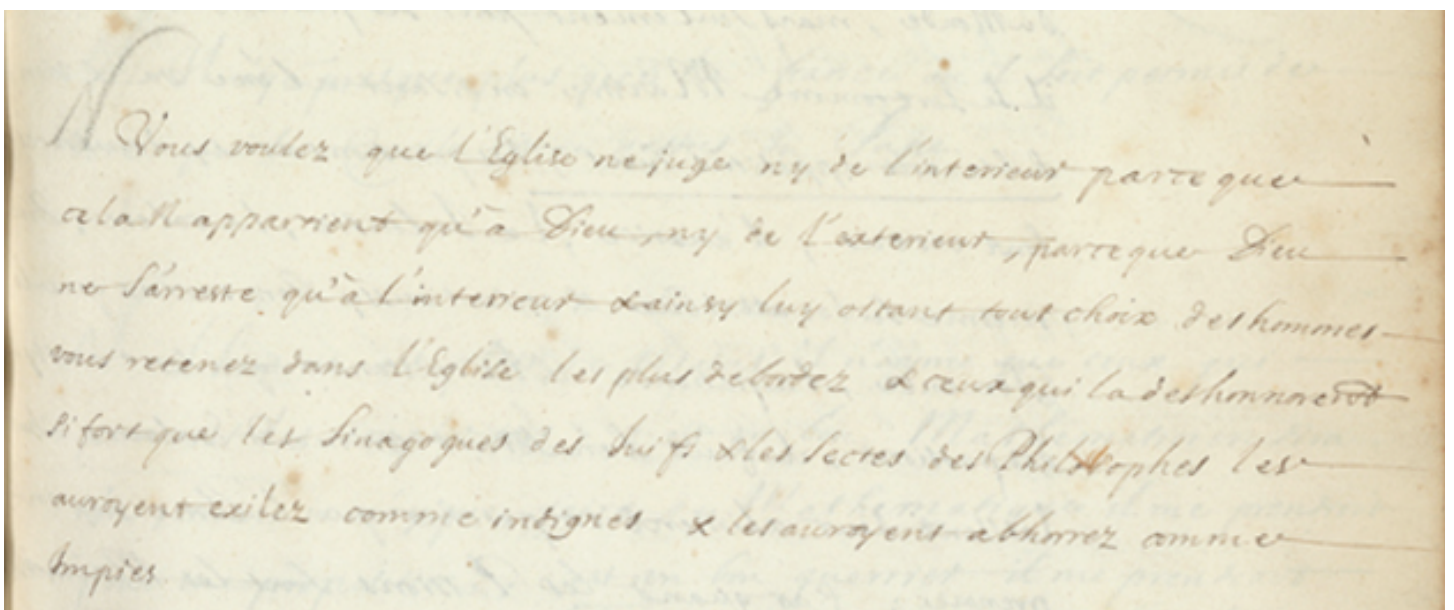 Vous voulez que l'Eglise ne juge ny de l'interieur parce que
cela N'appartient qu'à Dieu, ny de l'exterieur, parce que Dieu
ne s'arreste qu'à l'interieur & ainsy luy ostant tout choix des hommes
vous retenez dans l'Eglise les plus debordez & ceux qui la deshonnorent
si fort que les Sinagogues des Juifs & les sectes des Philosophes les
auroyent exilez comme indignes & les auroyent abhorrez comme
Impies